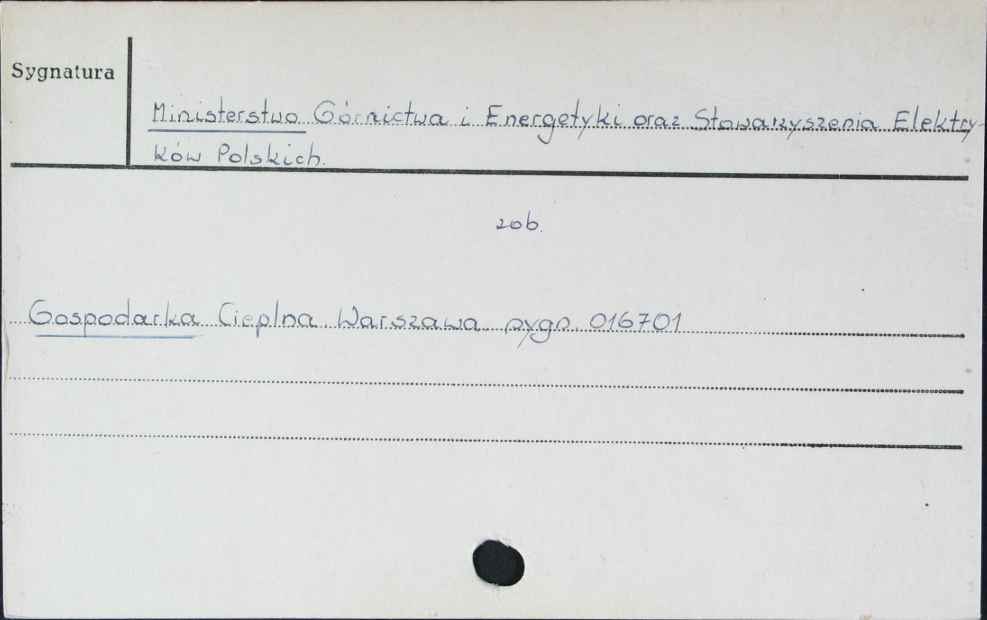 Sygnatura
Ministerstwo Górnictwa i Energetyki oraz Stowarzyszenia Elektry-
ków Polskich.
zob.
Gospodarka Cieplna Warszawa sygn. 016701